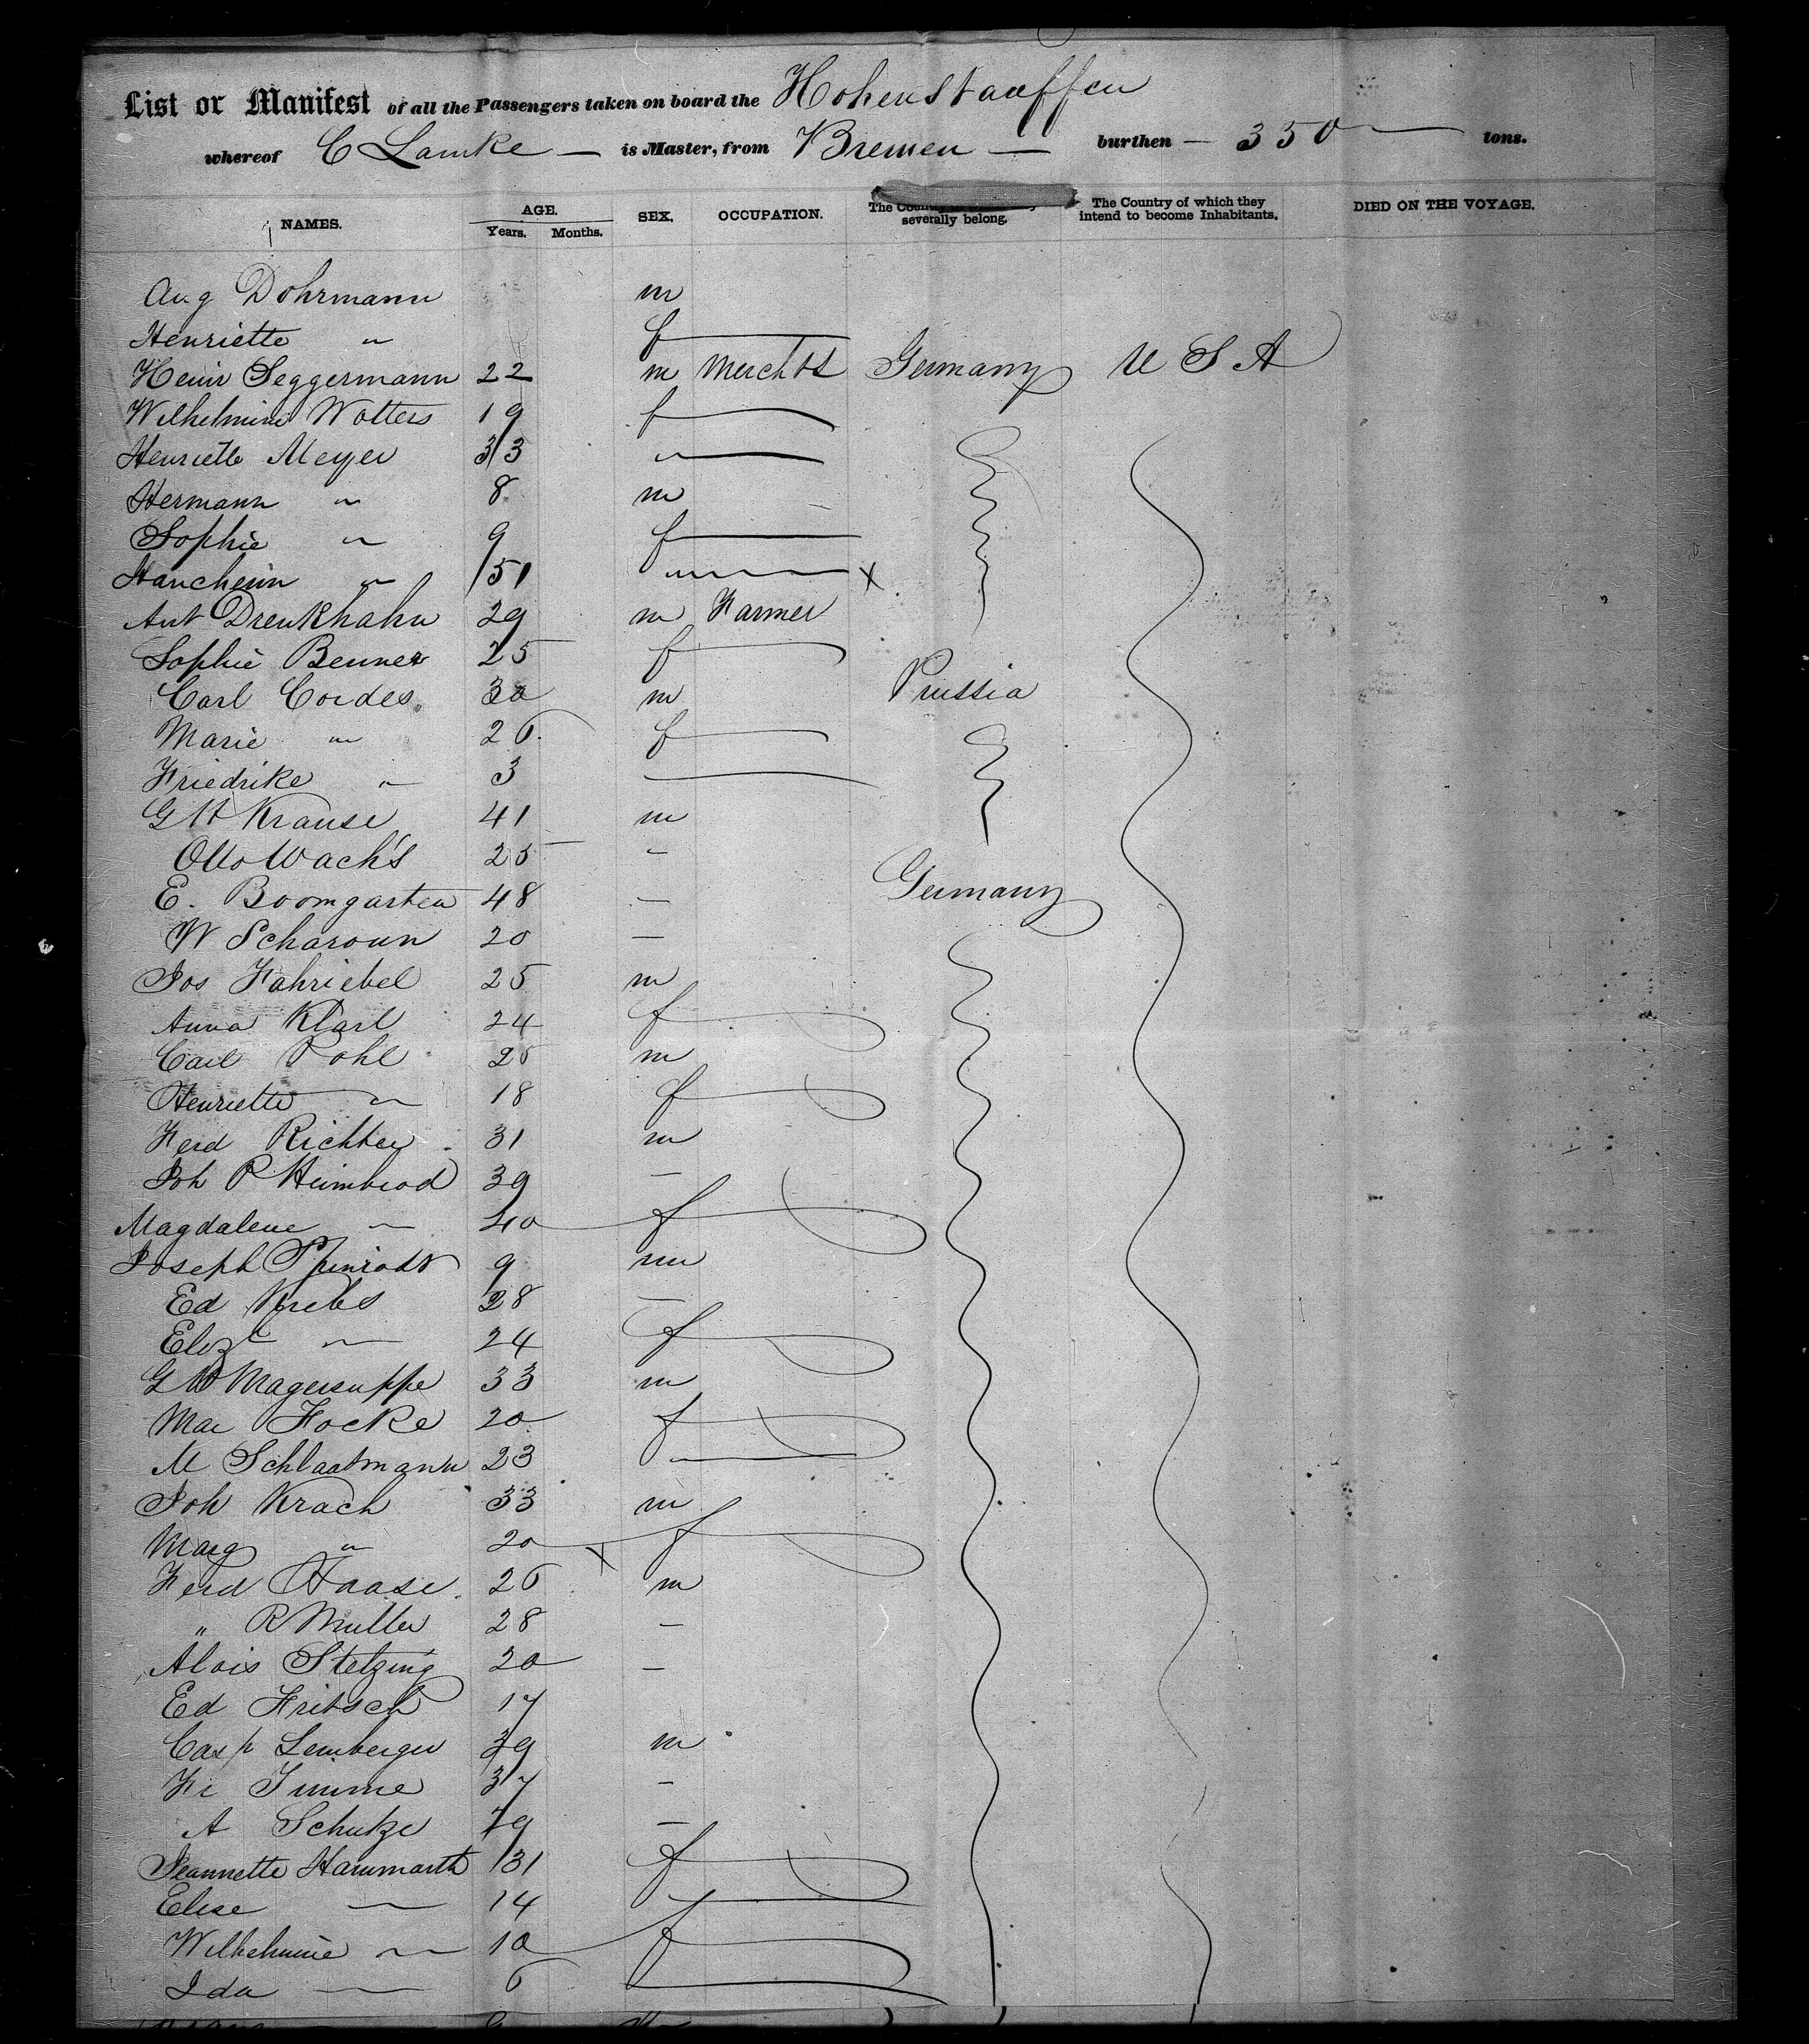 List or Manifest of all the Passengers taken on board the Hohenstauffen
whereof C Lamke — is Master, from Bremen — burthen — 350 — tons.
NAMES. AGE. Years. Months. SEX. OCCUPATION. The Country severally belong. The Country of which they intend to become Inhabitants. DIED ON THE VOYAGE.
Aug Dohrmann m
Henriette " f
Heinr Seggermann 22 m Merchts Germany U S A
Wilhelmine Wolters 19 f
Henriette Meyer 33 "
Hermann " 8 m
Sophie " 9 f
" 51 " x
Ant Drenkhahn 29 m Farmer
Sophie Benner 25 f
Carl Cordes 30 m Prussia
Marie " 26 f
Friedrike " 3 —
G H Krause 41 m
Otto Wachs 25 —
E. Boomgarten 48 — Germany
W Scharoun 20 —
Jos Fahriebel 25 m
Anna Klarl 24 f
Carl Pohl 25 m
Henriette " 18 f
Ferd Richter 31 m
Joh P Heimbrod 39 —
Magdalene — 40 f
Joseph 9 m
Ed Krebs 28 —
Eliz " 24 f
G W Magersuppe 33 m
Mar Focke 20 f
M Schlaatmann 23 "
Joh Krach 33 m
Marg " 20 x f
Ferd Haase 26 m
" R Muller 28 —
Alois Stelzing 20 —
Ed Fritsch 17
Casp Lemberger 39 m
Fr Timme 37 —
A Schutze 19 —
Jeannette Hammarth 31 f
Elise — 14
Wilhelmine " 10 f
Ida — 6